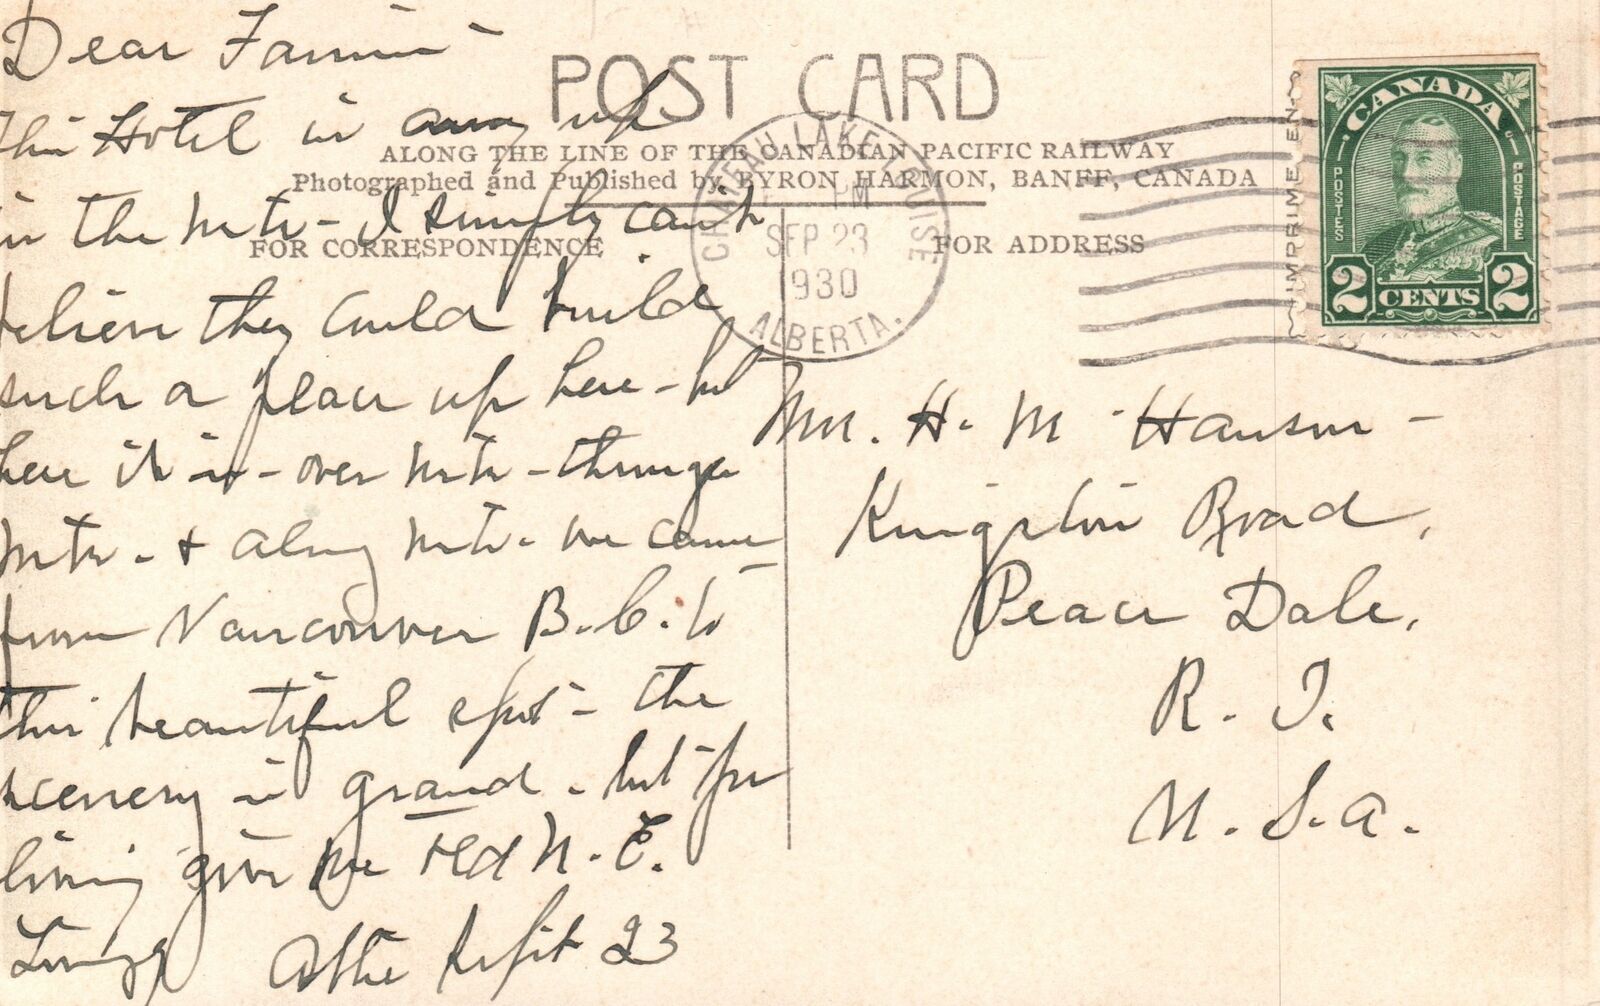 Dear Fannie -
This Hotel is away up
in the mts - I simply can't
believe they could build
such a place up here - but
here it is - over mts - through
mts - & along mts - we came
from Vancouver B.C. to
this beautiful spot - the
scenery is grand - but for
living give me old N. E.
Lovingly Sept 23
POST CARD
ALONG THE LINE OF THE CANADIAN PACIFIC RAILWAY
Photographed and Published by BYRON HARMON, BANFF, CANADA
FOR CORRESPONDENCE
FOR ADDRESS
CHATEAU LAKE LOUISE
PM
SEP 23
1930
ALBERTA.
IMPRIME EN
CANADA
POSTES
POSTAGE
2 CENTS 2
Mrs. H. M. Hanson -
Kingston Road,
Peace Dale,
R. I.
U. S. A.